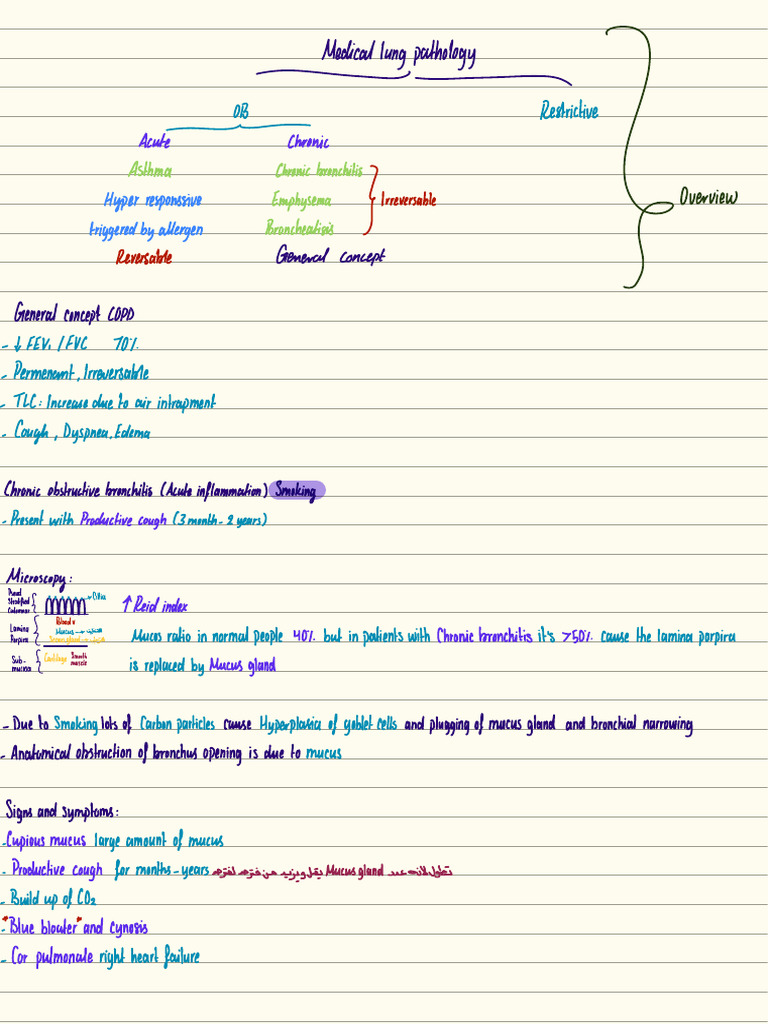 Medical lung pathology
OB Restrictive
Acute Chronic
Asthma Chronic bronchitis
Hyper responssive Emphysema Irreversable
triggered by allergen Broncheatisis
Reversable General concept
Overview
General concept COPD
- ↓ FEV₁ / FVC 70%.
- Permenant, Irreversable
- TLC: Increase due to air intrapment
- Cough, Dyspnea, Edema
Chronic obstructive bronchitis (Acute inflammation) Smoking
- Present with Productive cough (3 month - 2 years)
Microscopy:
Pseud Stratified Columnar Cilia
↑ Reid index
Lamina Porpira Blood v Mucus
Mucos ratio in normal people 40%. but in patients with Chronic bronchitis it's >50%. cause the lamina porpira
Sub-mucosa Cartilage Smooth muscle
is replaced by Mucus gland
- Due to Smoking lots of Carbon particles cause Hyperplasia of goblet cells and plugging of mucus gland and bronchial narrowing
- Anatomical obstruction of bronchus opening is due to mucus
Signs and symptoms:
- Cupious mucus large amount of mucus
- Productive cough for months - years تطول لانه عدد Mucus gland يقل ويزيد من فتره لفتره
- Build up of CO₂
- "Blue bloater" and cynosis
- Cor pulmonale right heart failure